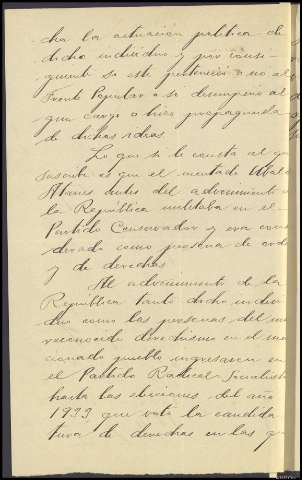 cha la actuación política de
dicho individuo y por consi-
guiente si este perteneció o no al
Frente Popular o si desempeñó al
gun cargo o hizo propaganda
de dichas ideas
Lo que si le consta al que
suscribe es que el mentado
antes del advenimiento de
la República militaba en el
Partido Conservador y era consi
derado como persona de orden
y de derechas.
Al advenimiento de la
República tanto dicho indivi
duo como las personas del mas
reconocido derechismo en el men
cionado pueblo ingresaron en
el Partido Radical-Socialista
hasta las elecciones del año
1933 que votó la candida
tura de derechas en las que